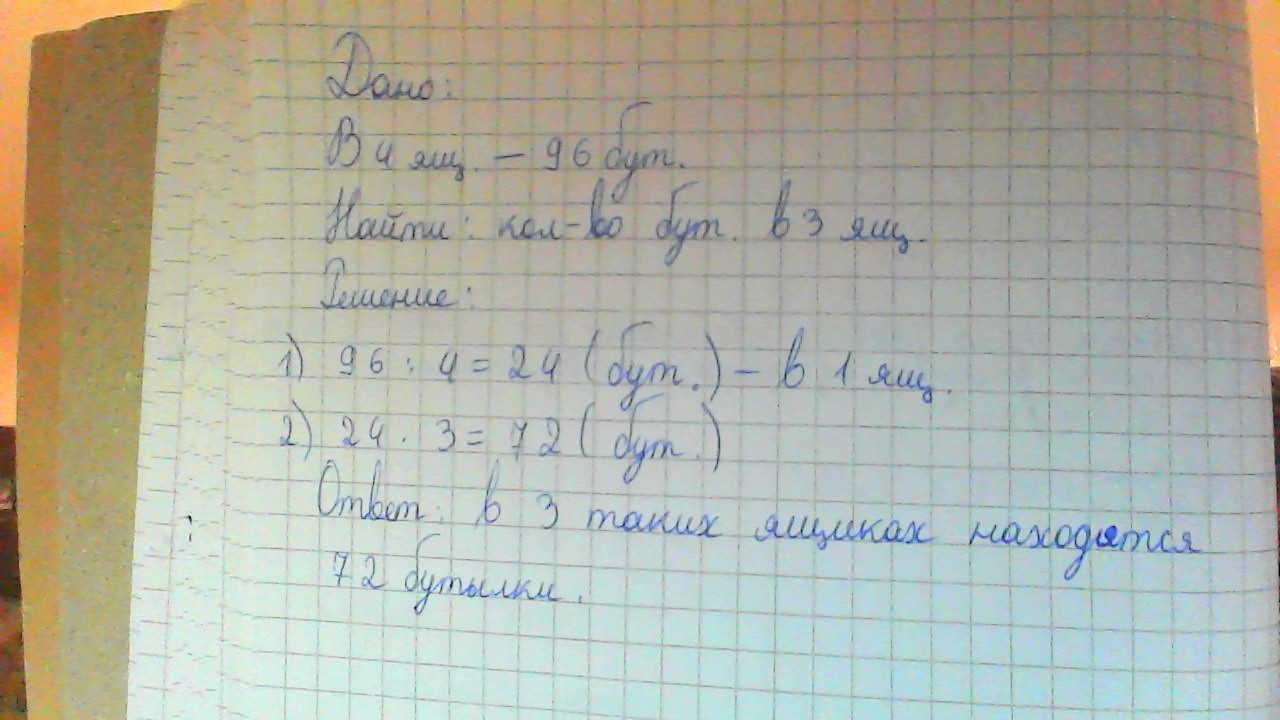 Дано:
В 4 ящ. – 96 бут.
Найти: кол-во бут. в 3 ящ.
Решение:
1) 96 : 4 = 24 (бут.) – в 1 ящ.
2) 24 · 3 = 72 (бут.)
Ответ: в 3 таких ящиках находятся
72 бутылки.